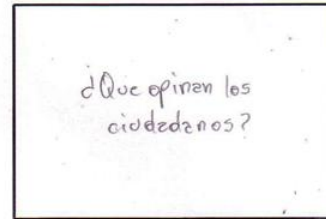 ¿Que opinan los
ciudadanos?